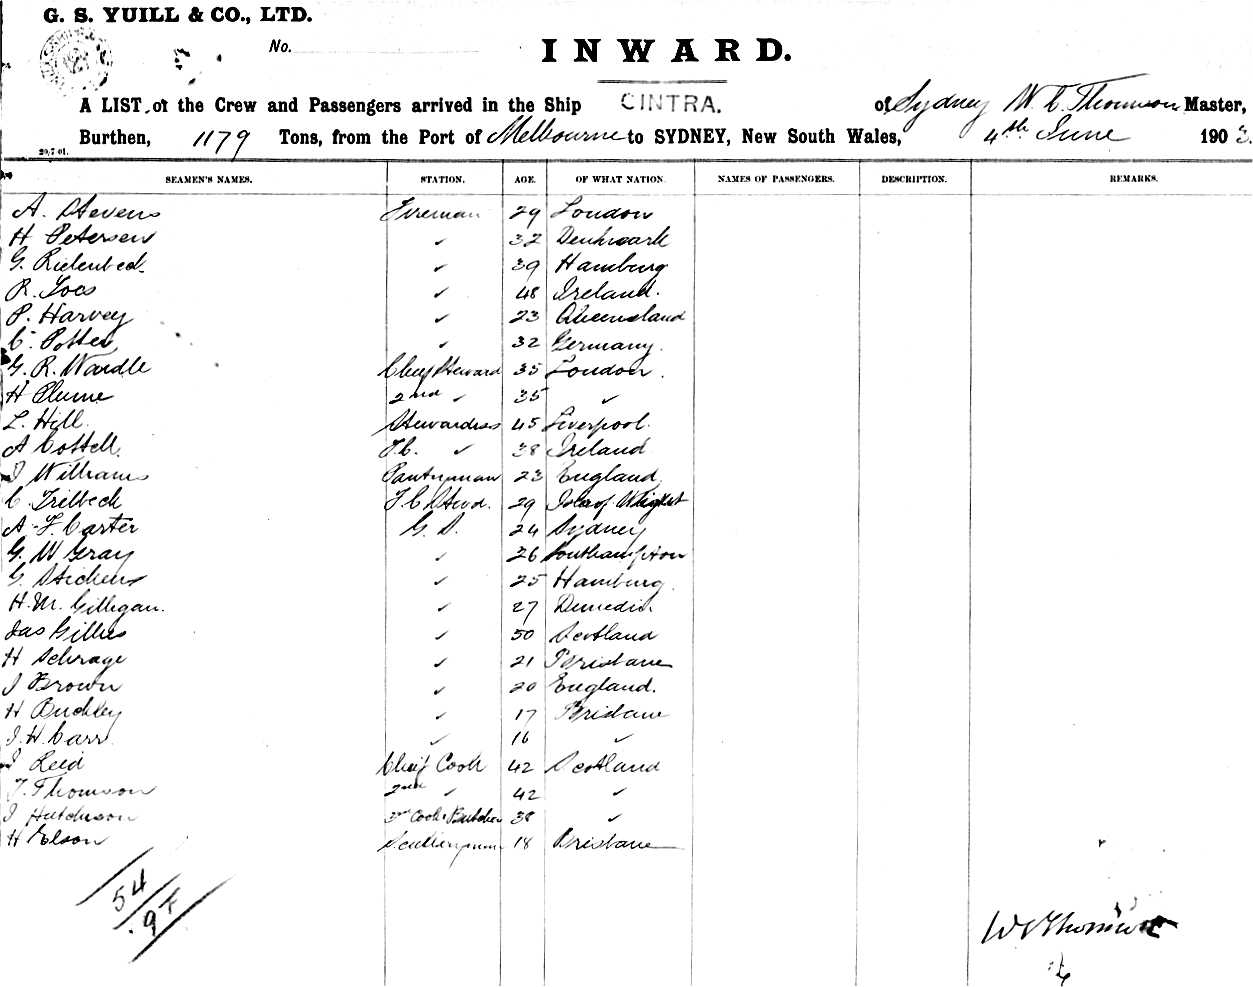 G. S. YUILL & CO., LTD.
No.
INWARD.
A LIST of the Crew and Passengers arrived in the Ship CINTRA. of Sydney W. C. Thomson Master,
Burthen, 1179 Tons, from the Port of Melbourne to SYDNEY, New South Wales, 4th June 1903.
20,7 01.
SEAMEN'S NAMES. STATION. AGE. OF WHAT NATION. NAMES OF PASSENGERS. DESCRIPTION. REMARKS.
A. Stevens Fireman 29 London
H Petersen ✓ 32 Denmark
G. ✓ 39 Hamburg
R. ✓ 48 Ireland.
P. Harvey ✓ 23 Queensland
C. Potter ✓ 32 Germany.
G. R. Wardle Chief Steward 35 London.
H Plume 2nd ✓ 35 ✓
L. Hill. Stewardess 45 Liverpool.
A Cottell. F.C. ✓ 38 Ireland
J Williams Pantryman 23 England
C. Trilbeck F C Stwd. 29 Isle of Wight
A. F. Carter G. S. 24 Sydney
G. W Gray ✓ 26 Southampton
G. ✓ 25 Hamburg.
H. M. Gilligan. ✓ 27 Dunedin
Jas Gillies ✓ 50 Scotland
H Schrage ✓ 21 Brisbane
J Brown ✓ 20 England.
H Buckley ✓ 17 Brisbane
J. H. Carr ✓ 16 ✓
J Reid Chief Cook 42 Scotland
T. Thomson 2nd ✓ 42 ✓
J Hutchison 3rd Cook & Butcher 38 ✓
H Elson Sculleryman 18 Brisbane
54
9
W C Thomson